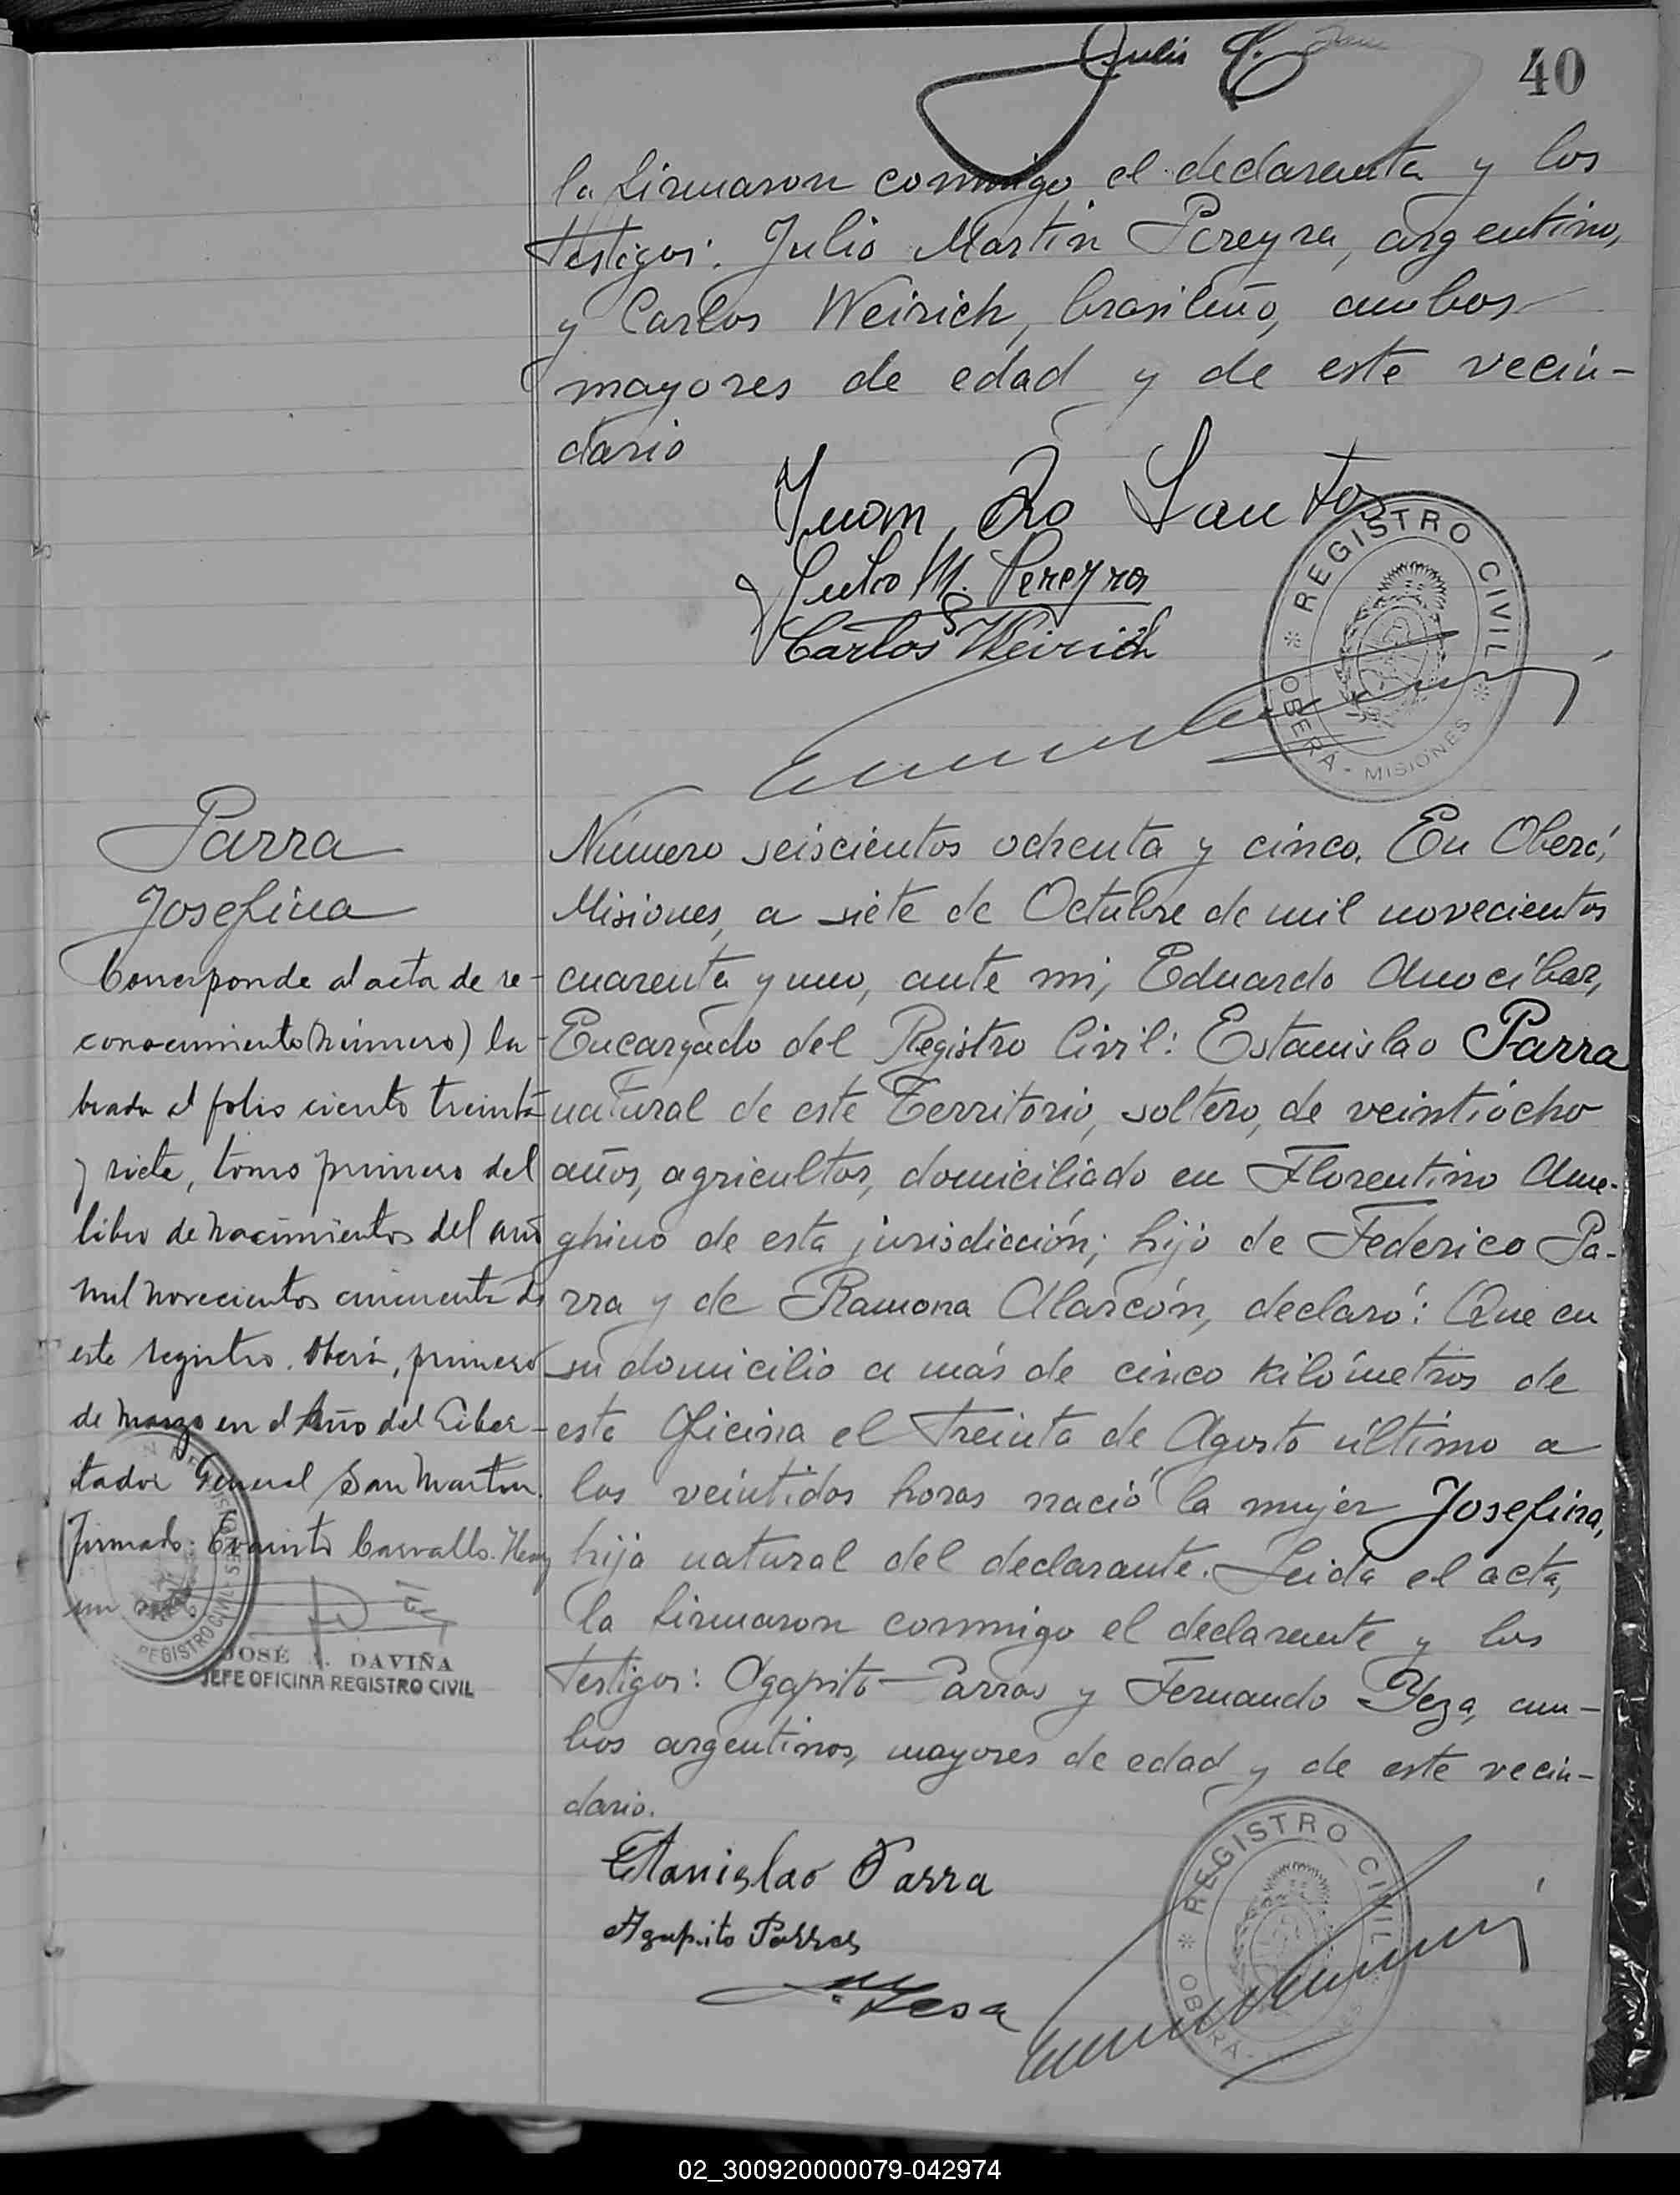 40
Julio
la firmaron conmigo el declarante y los
testigos: Julio Martin Pereyra, argentino,
y Carlos Weirich, brasileño, ambos
mayores de edad y de este vecin-
dario
Juan Do Santos
Julio M. Pereyra
Carlos Weirich
REGISTRO CIVIL
OBERA - MISIONES
Parra
Josefina
Corresponde al acta de re-
conocimiento (número) la-
brada al folio ciento treinta
y siete, tomo primero del
libro de nacimientos del año
mil novecientos cincuenta de
este registro. Oberá, primero
de Marzo en el Año del Liber-
tador General San Martin.
Firmado: Evaristo Carvallo. Hay
un
REGISTRO CIVIL
JOSÉ DAVIÑA
JEFE OFICINA REGISTRO CIVIL
Número seiscientos ochenta y cinco. En Oberá,
Misiones, a siete de Octubre de mil novecientos
cuarenta y uno, ante mi, Eduardo Amocibar,
Encargado del Registro Civil: Estanislao Parra
natural de este Territorio, soltero, de veintiocho
años, agricultor, domiciliado en Florentino Ame-
ghino de esta jurisdicción; hijo de Federico Pa-
rra y de Ramona Alarcón, declaró: Que en
su domicilio a más de cinco kilómetros de
esta Oficina el treinta de Agosto último a
las veintidos horas nació la mujer Josefina,
hija natural del declarante. Leida el acta,
la firmaron conmigo el declarante y los
testigos: Agapito Parras y Fernando Yeza, am-
bos argentinos, mayores de edad y de este vecin-
dario.
Estanislao Parra
Agapito Parras
Yesa
REGISTRO CIVIL
02_300920000079-042974